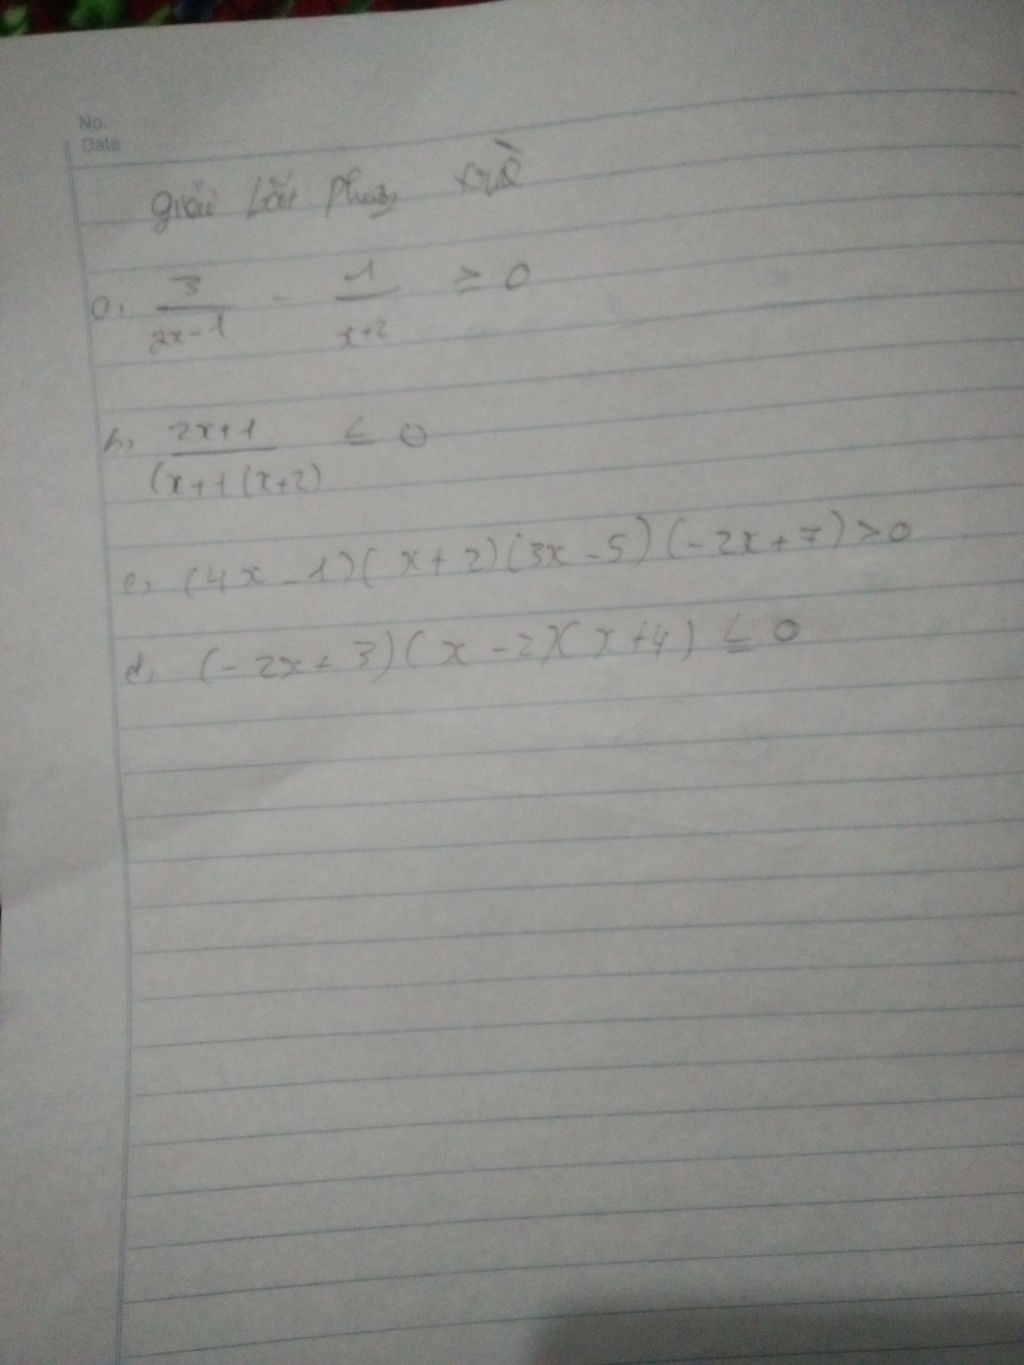 No.
Date
giải bất phương trình
a, 3/(2x-1) - 1/(x+2) ≥ 0
b, 2x+1/(x+1(x+2) ≤ 0
c, (4x-1)(x+2)(3x-5)(-2x+7)>0
d, (-2x+3)(x-2)(x+4) ≤ 0